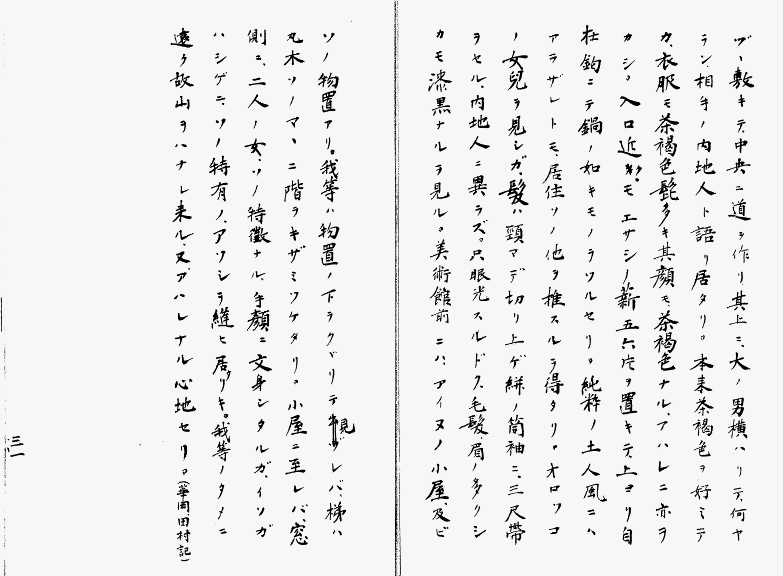 ヅヽ敷キテ、中央ニ道ヲ作リ其上ニ、大ノ男横ハリテ、何ヤ
ラン、相手ノ内地人ト語リ居タリ。本来茶褐色ヲ好ミテ
カ、衣服モ茶褐色髭多キ其顔モ、茶褐色ナル、アハレニ亦ヲ
カシ。入口近クモエサシノ薪五六片ヲ置キテ、上ヨリ自
在鈎ニテ鍋ノ如キモノヲツルセリ。純粋ノ土人風ニハ
アラザレトモ、居住ソノ他ヲ推スルヲ得タリ。オロツコ
ノ女兒ヲ見シガ、髮ハ頸マデ切リ上ゲ絣ノ筒袖ニ、三尺帶
ヲセル、内地人ニ異ラズ。只眼光スルドク、毛髮、眉ノ多クシ
カモ漆黒ナルヲ見ル。美術館前ニハ、アイヌノ小屋及ビ
ソノ物置アリ。我等ハ物置ノ下ヲクヾリテ見レバ、梯ハ
丸木ソノマヽニ階ヲキザミツケタリ。小屋ニ至レバ、窓
側ニ、二人ノ女、ソノ特徴ナル、手顔ニ文身シタルガ、イソガ
ハシゲニ、ソノ特有ノ、アツシヲ縫ヒ居タリキ。我等ノタメニ
遠ク故山ヲハナレ来ル、又アハレナル心地セリ。(華岡、田村記)
三一